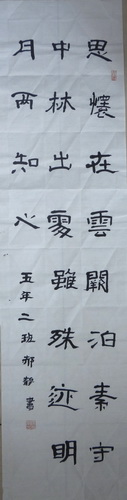 思懷在雲闕泊素守
中林出處雖殊迹明
月兩知心
五年二班書